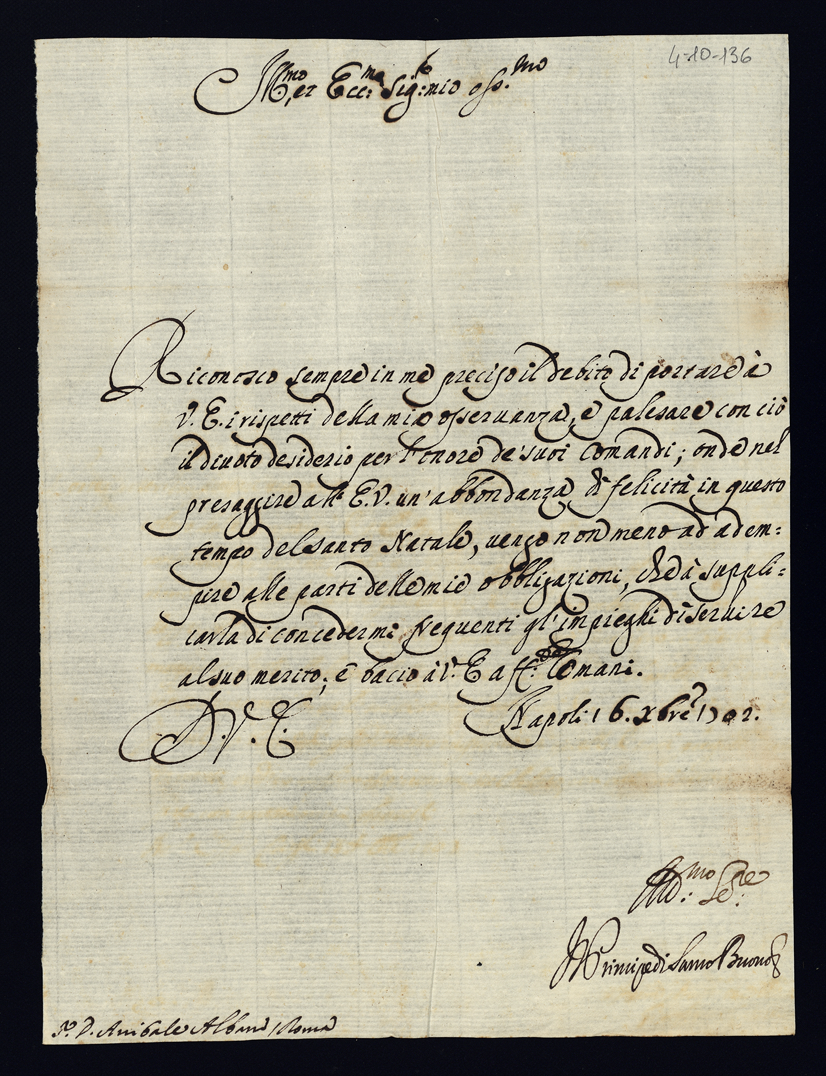 4-10-136
Ill.mo, et Ecc.mo Sig.re mio oss.mo
Riconosco sempre in me preciso il debito di portare à
V. E. i rispetti della mia osseruanza, e palesare con ciò
il diuoto desiderio per l'onore de' suoi Comandi; onde nel
presaggire all' E. V. un' abbondanza di felicità in questo
tempo del santo Natale, uengo non meno ad adem=
pire alle parti delle mie obbligazioni, che à suppli=
carla di concedermi frequenti gl' impieghi di seruire
al suo merito; e bacio à V. E. aff.te le mani.
Napoli 16. Xbre 1702.
D. V. E.
Principe di Santo Buono
S.r D. Anibale Albani / Roma